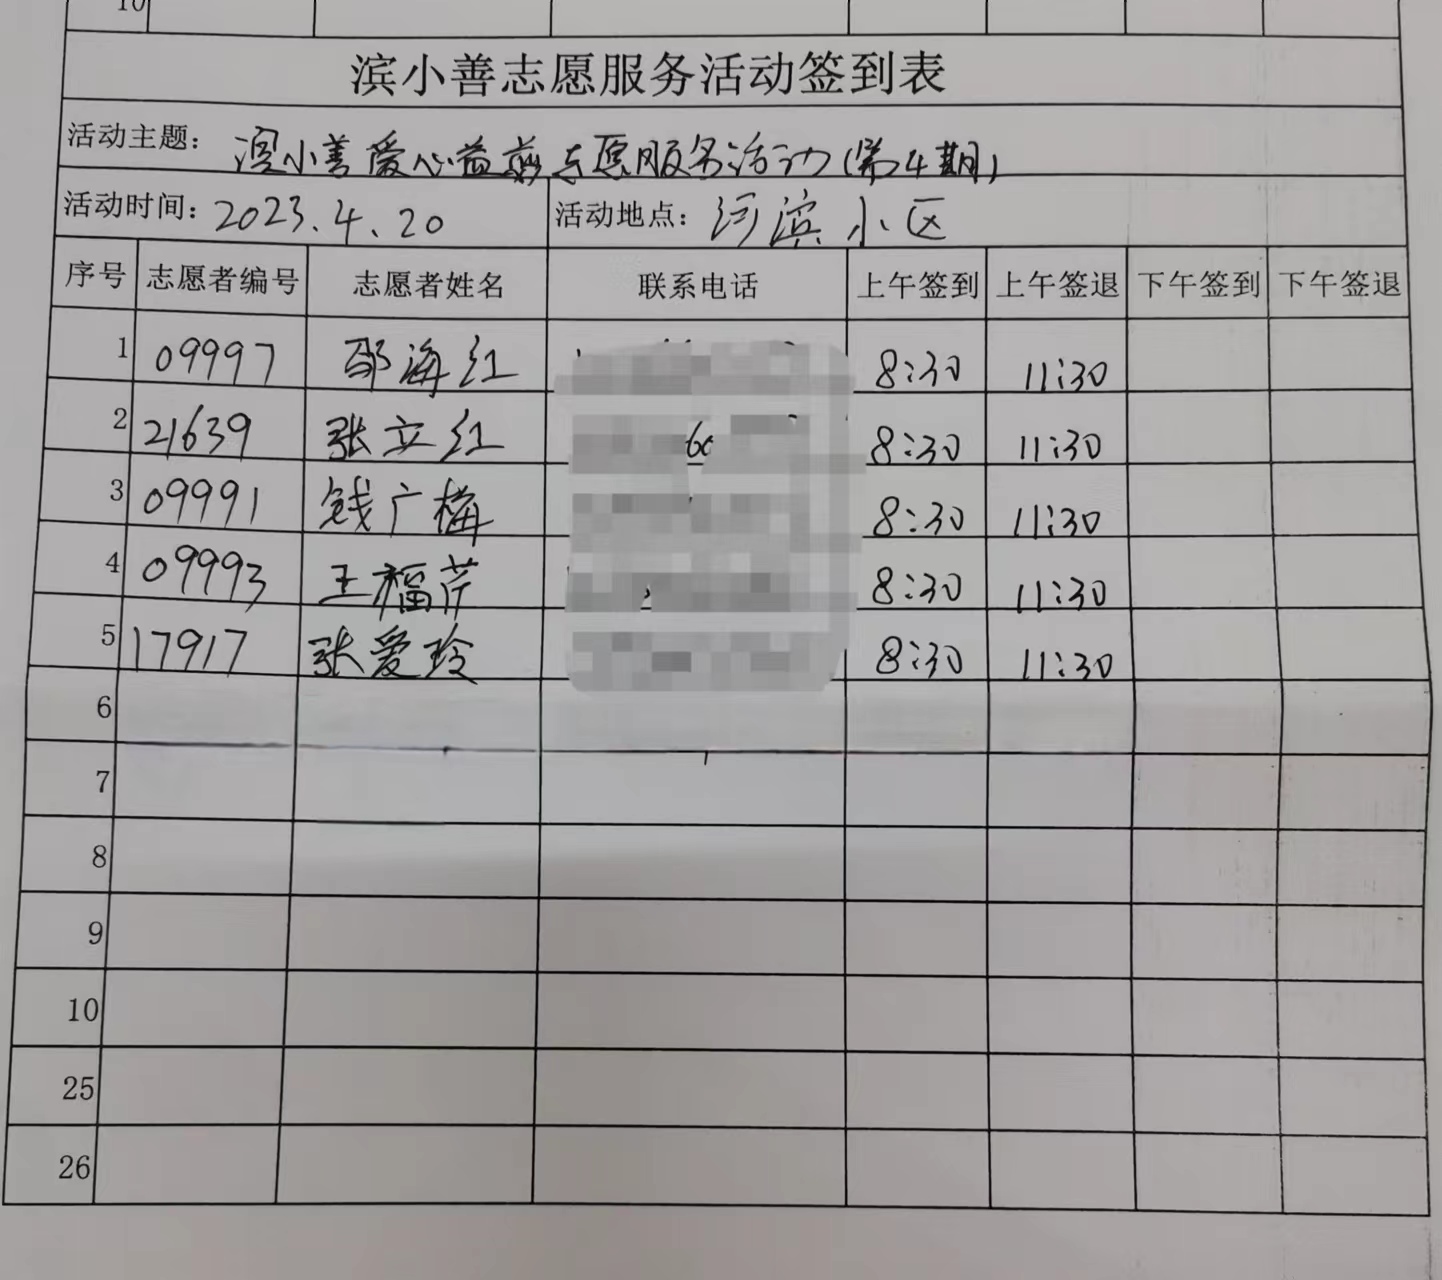 10
滨小善志愿服务活动签到表
活动主题： 滨小善爱心益剪志愿服务活动(第4期)
活动时间： 2023.4.20 活动地点： 河滨小区
序号 志愿者编号 志愿者姓名 联系电话 上午签到 上午签退 下午签到 下午签退
1 09997 邵海红 8:30 11:30
2 21639 张立红 8:30 11:30
3 09991 钱广梅 8:30 11:30
4 09993 王福芹 8:30 11:30
5 17917 张爱玲 8:30 11:30
6
7
8
9
10
25
26